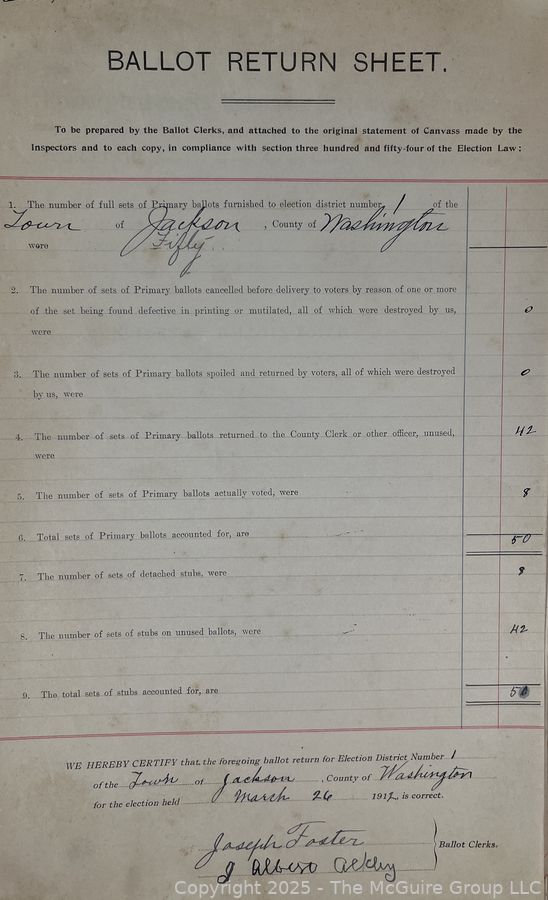 BALLOT RETURN SHEET.
To be prepared by the Ballot Clerks, and attached to the original statement of Canvass made by the
Inspectors and to each copy, in compliance with section three hundred and fifty-four of the Election Law:
1. The number of full sets of Primary ballots furnished to election district number 1 of the
Town of Jackson, County of Washington
were Fifty
2. The number of sets of Primary ballots cancelled before delivery to voters by reason of one or more
of the set being found defective in printing or mutilated, all of which were destroyed by us, 0
were
3. The number of sets of Primary ballots spoiled and returned by voters, all of which were destroyed 0
by us, were
4. The number of sets of Primary ballots returned to the County Clerk or other officer, unused, 42
were
5. The number of sets of Primary ballots actually voted, were 8
6. Total sets of Primary ballots accounted for, are 50
7. The number of sets of detached stubs, were 8
8. The number of sets of stubs on unused ballots, were 42
9. The total sets of stubs accounted for, are 50
WE HEREBY CERTIFY that the foregoing ballot return for Election District Number 1
of the Town of Jackson, County of Washington
for the election held March 26 1912, is correct.
Joseph Foster
J Albert Ballot Clerks.
Copyright 2025 - The McGuire Group LLC